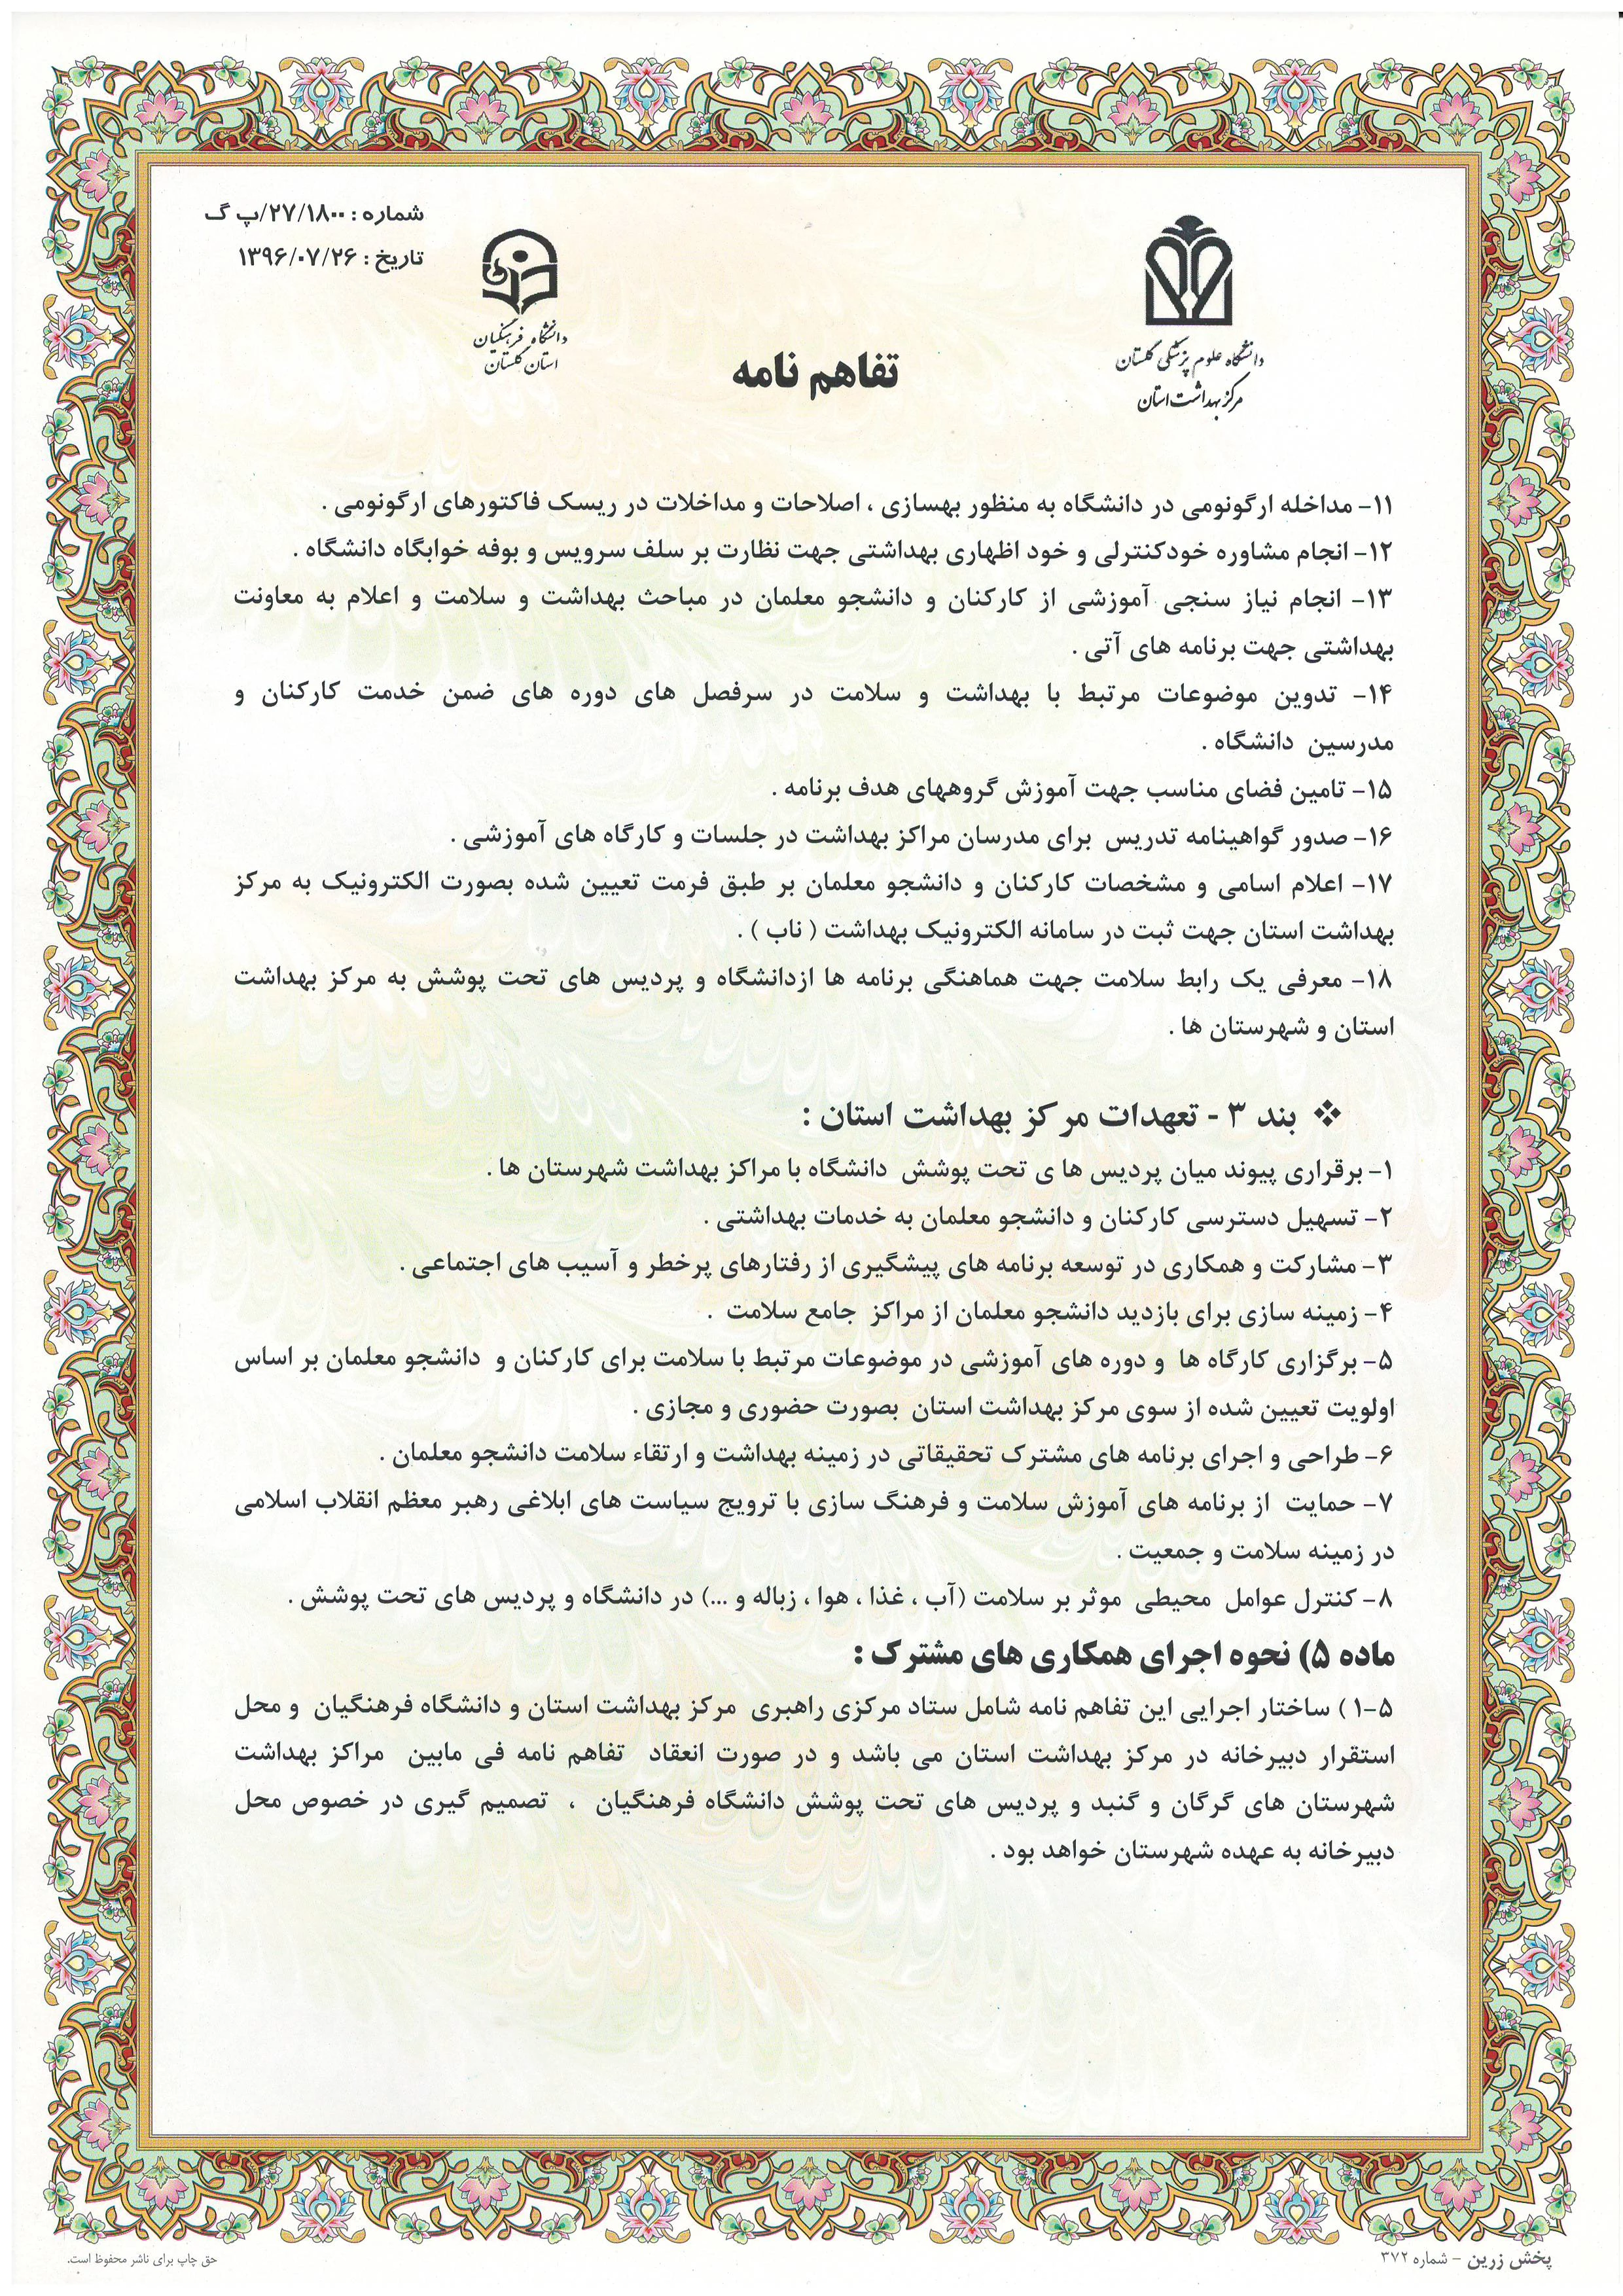 شماره : ۲۷/۱۸۰۰/پ گ
تاریخ : ۱۳۹۶/۰۷/۲۶
دانشگاه علوم پزشکی گلستان
مرکز بهداشت استان
دانشگاه فرهنگیان
استان گلستان
تفاهم نامه
۱۱- مداخله ارگونومی در دانشگاه به منظور بهسازی ، اصلاحات و مداخلات در ریسک فاکتورهای ارگونومی .
۱۲- انجام مشاوره خودکنترلی و خود اظهاری بهداشتی جهت نظارت بر سلف سرویس و بوفه خوابگاه دانشگاه .
۱۳- انجام نیاز سنجی آموزشی از کارکنان و دانشجو معلمان در مباحث بهداشت و سلامت و اعلام به معاونت
بهداشتی جهت برنامه های آتی .
۱۴- تدوین موضوعات مرتبط با بهداشت و سلامت در سرفصل های دوره های ضمن خدمت کارکنان و
مدرسین دانشگاه .
۱۵- تامین فضای مناسب جهت آموزش گروههای هدف برنامه .
۱۶- صدور گواهینامه تدریس برای مدرسان مراکز بهداشت در جلسات و کارگاه های آموزشی .
۱۷- اعلام اسامی و مشخصات کارکنان و دانشجو معلمان بر طبق فرمت تعیین شده بصورت الکترونیک به مرکز
بهداشت استان جهت ثبت در سامانه الکترونیک بهداشت ( ناب ) .
۱۸- معرفی یک رابط سلامت جهت هماهنگی برنامه ها ازدانشگاه و پردیس های تحت پوشش به مرکز بهداشت
استان و شهرستان ها .
❖ بند ۳ - تعهدات مرکز بهداشت استان :
۱- برقراری پیوند میان پردیس ها ی تحت پوشش دانشگاه با مراکز بهداشت شهرستان ها .
۲- تسهیل دسترسی کارکنان و دانشجو معلمان به خدمات بهداشتی .
۳- مشارکت و همکاری در توسعه برنامه های پیشگیری از رفتارهای پرخطر و آسیب های اجتماعی .
۴- زمینه سازی برای بازدید دانشجو معلمان از مراکز جامع سلامت .
۵- برگزاری کارگاه ها و دوره های آموزشی در موضوعات مرتبط با سلامت برای کارکنان و دانشجو معلمان بر اساس
اولویت تعیین شده از سوی مرکز بهداشت استان بصورت حضوری و مجازی .
۶- طراحی و اجرای برنامه های مشترک تحقیقاتی در زمینه بهداشت و ارتقاء سلامت دانشجو معلمان .
۷- حمایت از برنامه های آموزش سلامت و فرهنگ سازی با ترویج سیاست های ابلاغی رهبر معظم انقلاب اسلامی
در زمینه سلامت و جمعیت .
۸- کنترل عوامل محیطی موثر بر سلامت (آب ، غذا ، هوا ، زباله و ...) در دانشگاه و پردیس های تحت پوشش .
ماده ۵) نحوه اجرای همکاری های مشترک :
۱-۵ ) ساختار اجرایی این تفاهم نامه شامل ستاد مرکزی راهبری مرکز بهداشت استان و دانشگاه فرهنگیان و محل
استقرار دبیرخانه در مرکز بهداشت استان می باشد و در صورت انعقاد تفاهم نامه فی مابین مراکز بهداشت
شهرستان های گرگان و گنبد و پردیس های تحت پوشش دانشگاه فرهنگیان ، تصمیم گیری در خصوص محل
دبیرخانه به عهده شهرستان خواهد بود .
پخش زرین - شماره ۳۷۲
حق چاپ برای ناشر محفوظ است.